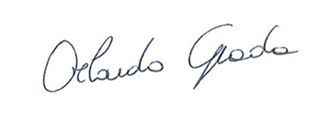 Orlando Grada